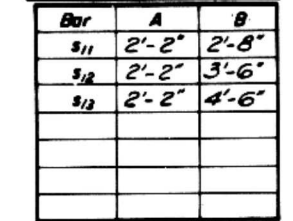 Bar A B
S11 2'-2" 2'-8"
S12 2'-2" 3'-6"
S13 2'-2" 4'-6"